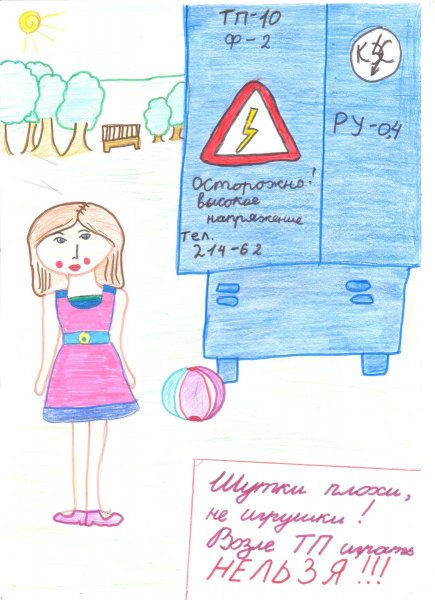 ТП-10
Ф-2
КЭС
РУ-0,4
Осторожно!
высокое
напряжение
тел.
214-62
Шутки плохи,
не игрушки!
Возле ТП играть
НЕЛЬЗЯ!!!